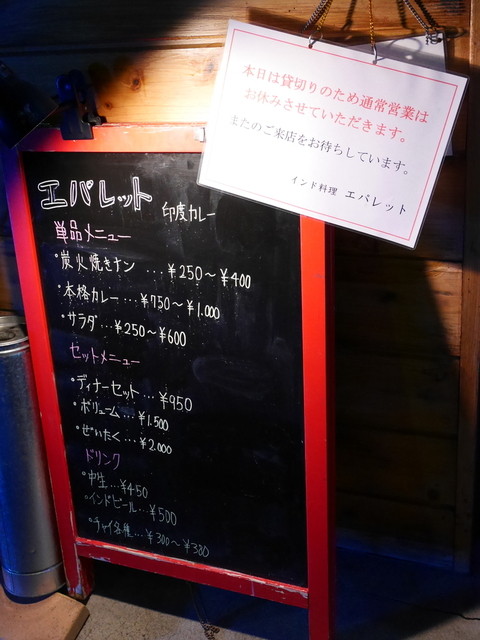 本日は貸切りのため通常営業は
お休みさせていただきます。
またのご来店をお待ちしています。
インド料理 エバレット
エバレット 印度カレー
単品メニュー
・炭火焼きナン ...¥250～¥400
・本格カレー...¥750～¥1.000
・サラダ...¥250～¥600
セットメニュー
・ディナーセット...¥950
・ボリューム...¥1.500
・ぜいたく...¥2.000
ドリンク
・中生...¥450
・インドビール...¥500
・チャイ各種...¥300～¥380